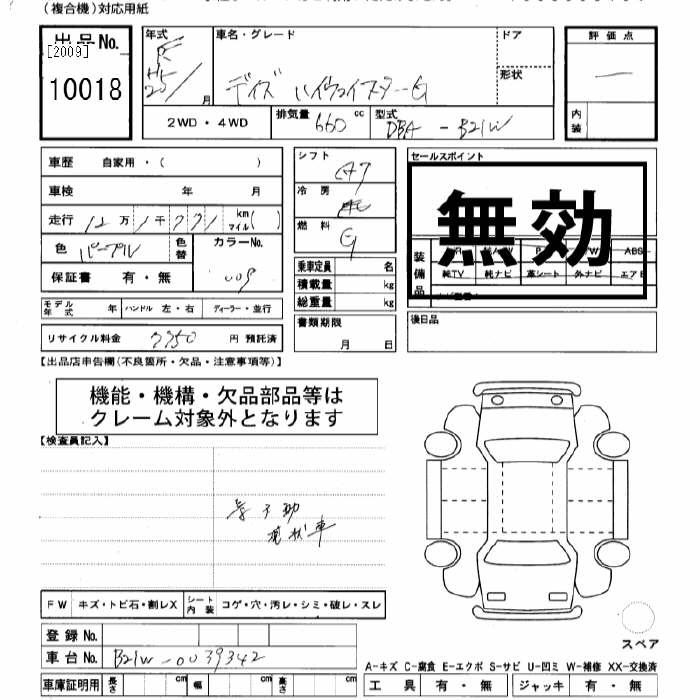 (複合機)対応用紙
出品No. 年式 車名・グレード ドア 評価点
[2009]
10018 H25/ 月 デイズ ハイウェイスターG 形状
内装
2WD・4WD 排気量 660 cc 型式 DBA-B21W
車歴 自家用・( ) シフト CA7 セールスポイント
車検 年 月 冷房
無効
走行 12万1千771 km マイル( ) 燃料 G
色 パープル 色替 カラーNo. 009
装備品 ABS
純TV 純ナビ 革シート 外ナビ エアB
保証書 有・無 乗車定員 名
積載量 kg
総重量 kg
モデル年式 年 ハンドル 左・右 ディーラー・並行
書類期限 月 日 後日品
リサイクル料金 7750 円 預託済
【出品店申告欄(不良箇所・欠品・注意事項等)】
機能・機構・欠品部品等は
クレーム対象外となります
【検査員記入】
FW キズ・トビ石・割レX シート内装 コゲ・穴・汚レ・シミ・破レ・スレ
登録No.
スペア
車台No. B21W-0039342
A-キズ C-腐食 E-エクボ S-サビ U-凹ミ W-補修 XX-交換済
車庫証明用 長さ cm 幅 cm 高さ cm 工具 有・無 ジャッキ 有・無